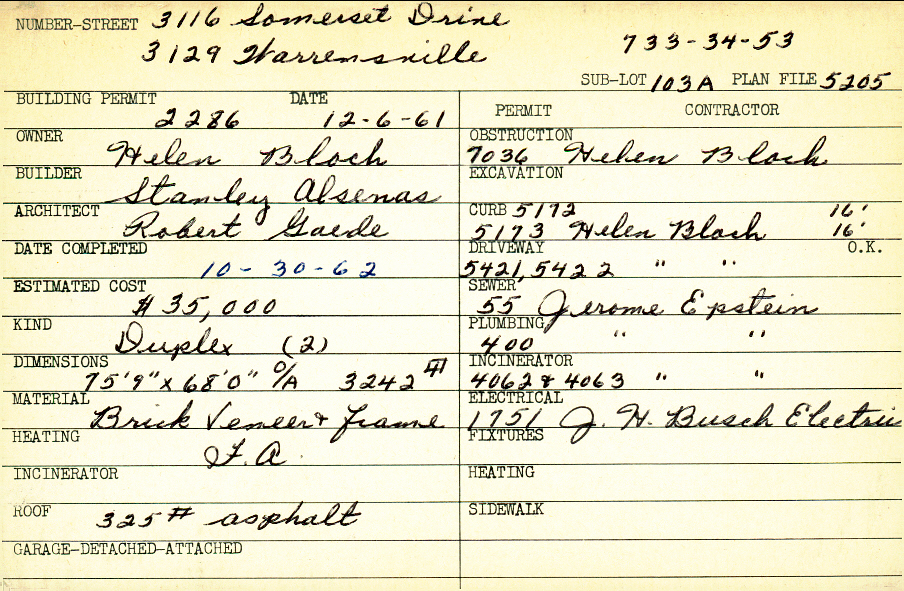 NUMBER-STREET 3116 Somerset Drive
3129 Warrensville
733-34-53
SUB-LOT 103A PLAN FILE 5205
BUILDING PERMIT DATE
2286 12-6-61
OWNER
Helen Bloch
BUILDER
Stanley Alsenas
ARCHITECT
Robert Gaede
DATE COMPLETED
10-30-62
ESTIMATED COST
$35,000
KIND
Duplex (2)
DIMENSIONS
75'9" x 68'0" O/A 3242
MATERIAL
Brick Veneer & frame
HEATING
F.A.
INCINERATOR
ROOF 325# asphalt
GARAGE-DETACHED-ATTACHED
PERMIT CONTRACTOR
OBSTRUCTION
7036 Helen Bloch
EXCAVATION
CURB 5172 16'
5173 Helen Bloch 16'
DRIVEWAY O.K.
5421, 5422 " "
SEWER
55 Jerome Epstein
PLUMBING
400 " "
INCINERATOR
4062 & 4063 " "
ELECTRICAL
1751 J. H. Busch Electric
FIXTURES
HEATING
SIDEWALK